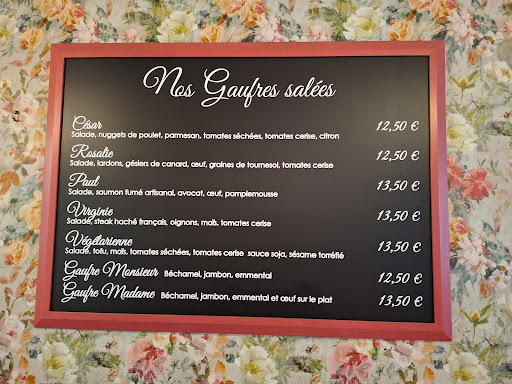 Nos Gaufres salées
César 12,50 €
Salade, nuggets de poulet, parmesan, tomates séchées, tomates cerise, citron
Rosalie 12,50 €
Salade, lardons, gésiers de canard, œuf, graines de tournesol, tomates cerise
Paul 13,50 €
Salade, saumon fumé artisanal, avocat, œuf, pamplemousse
Virginie 13,50 €
Salade, steak haché français, oignons, maïs, tomates cerise
Végétarienne 13,50 €
Salade, tofu, maïs, tomates séchées, tomates cerise sauce soja, sésame torréfié
Gaufre Monsieur Béchamel, jambon, emmental 12,50 €
Gaufre Madame Béchamel, jambon, emmental et œuf sur le plat 13,50 €